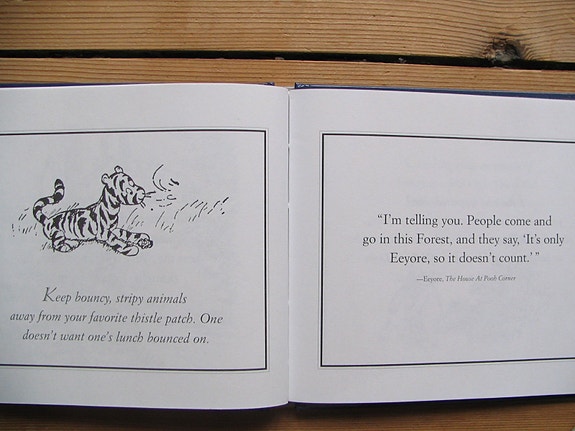 Keep bouncy, stripy animals
away from your favorite thistle patch. One
doesn't want one's lunch bounced on.
“I'm telling you. People come and
go in this Forest, and they say, ‘It's only
Eeyore, so it doesn't count.’ ”
—Eeyore, The House At Pooh Corner